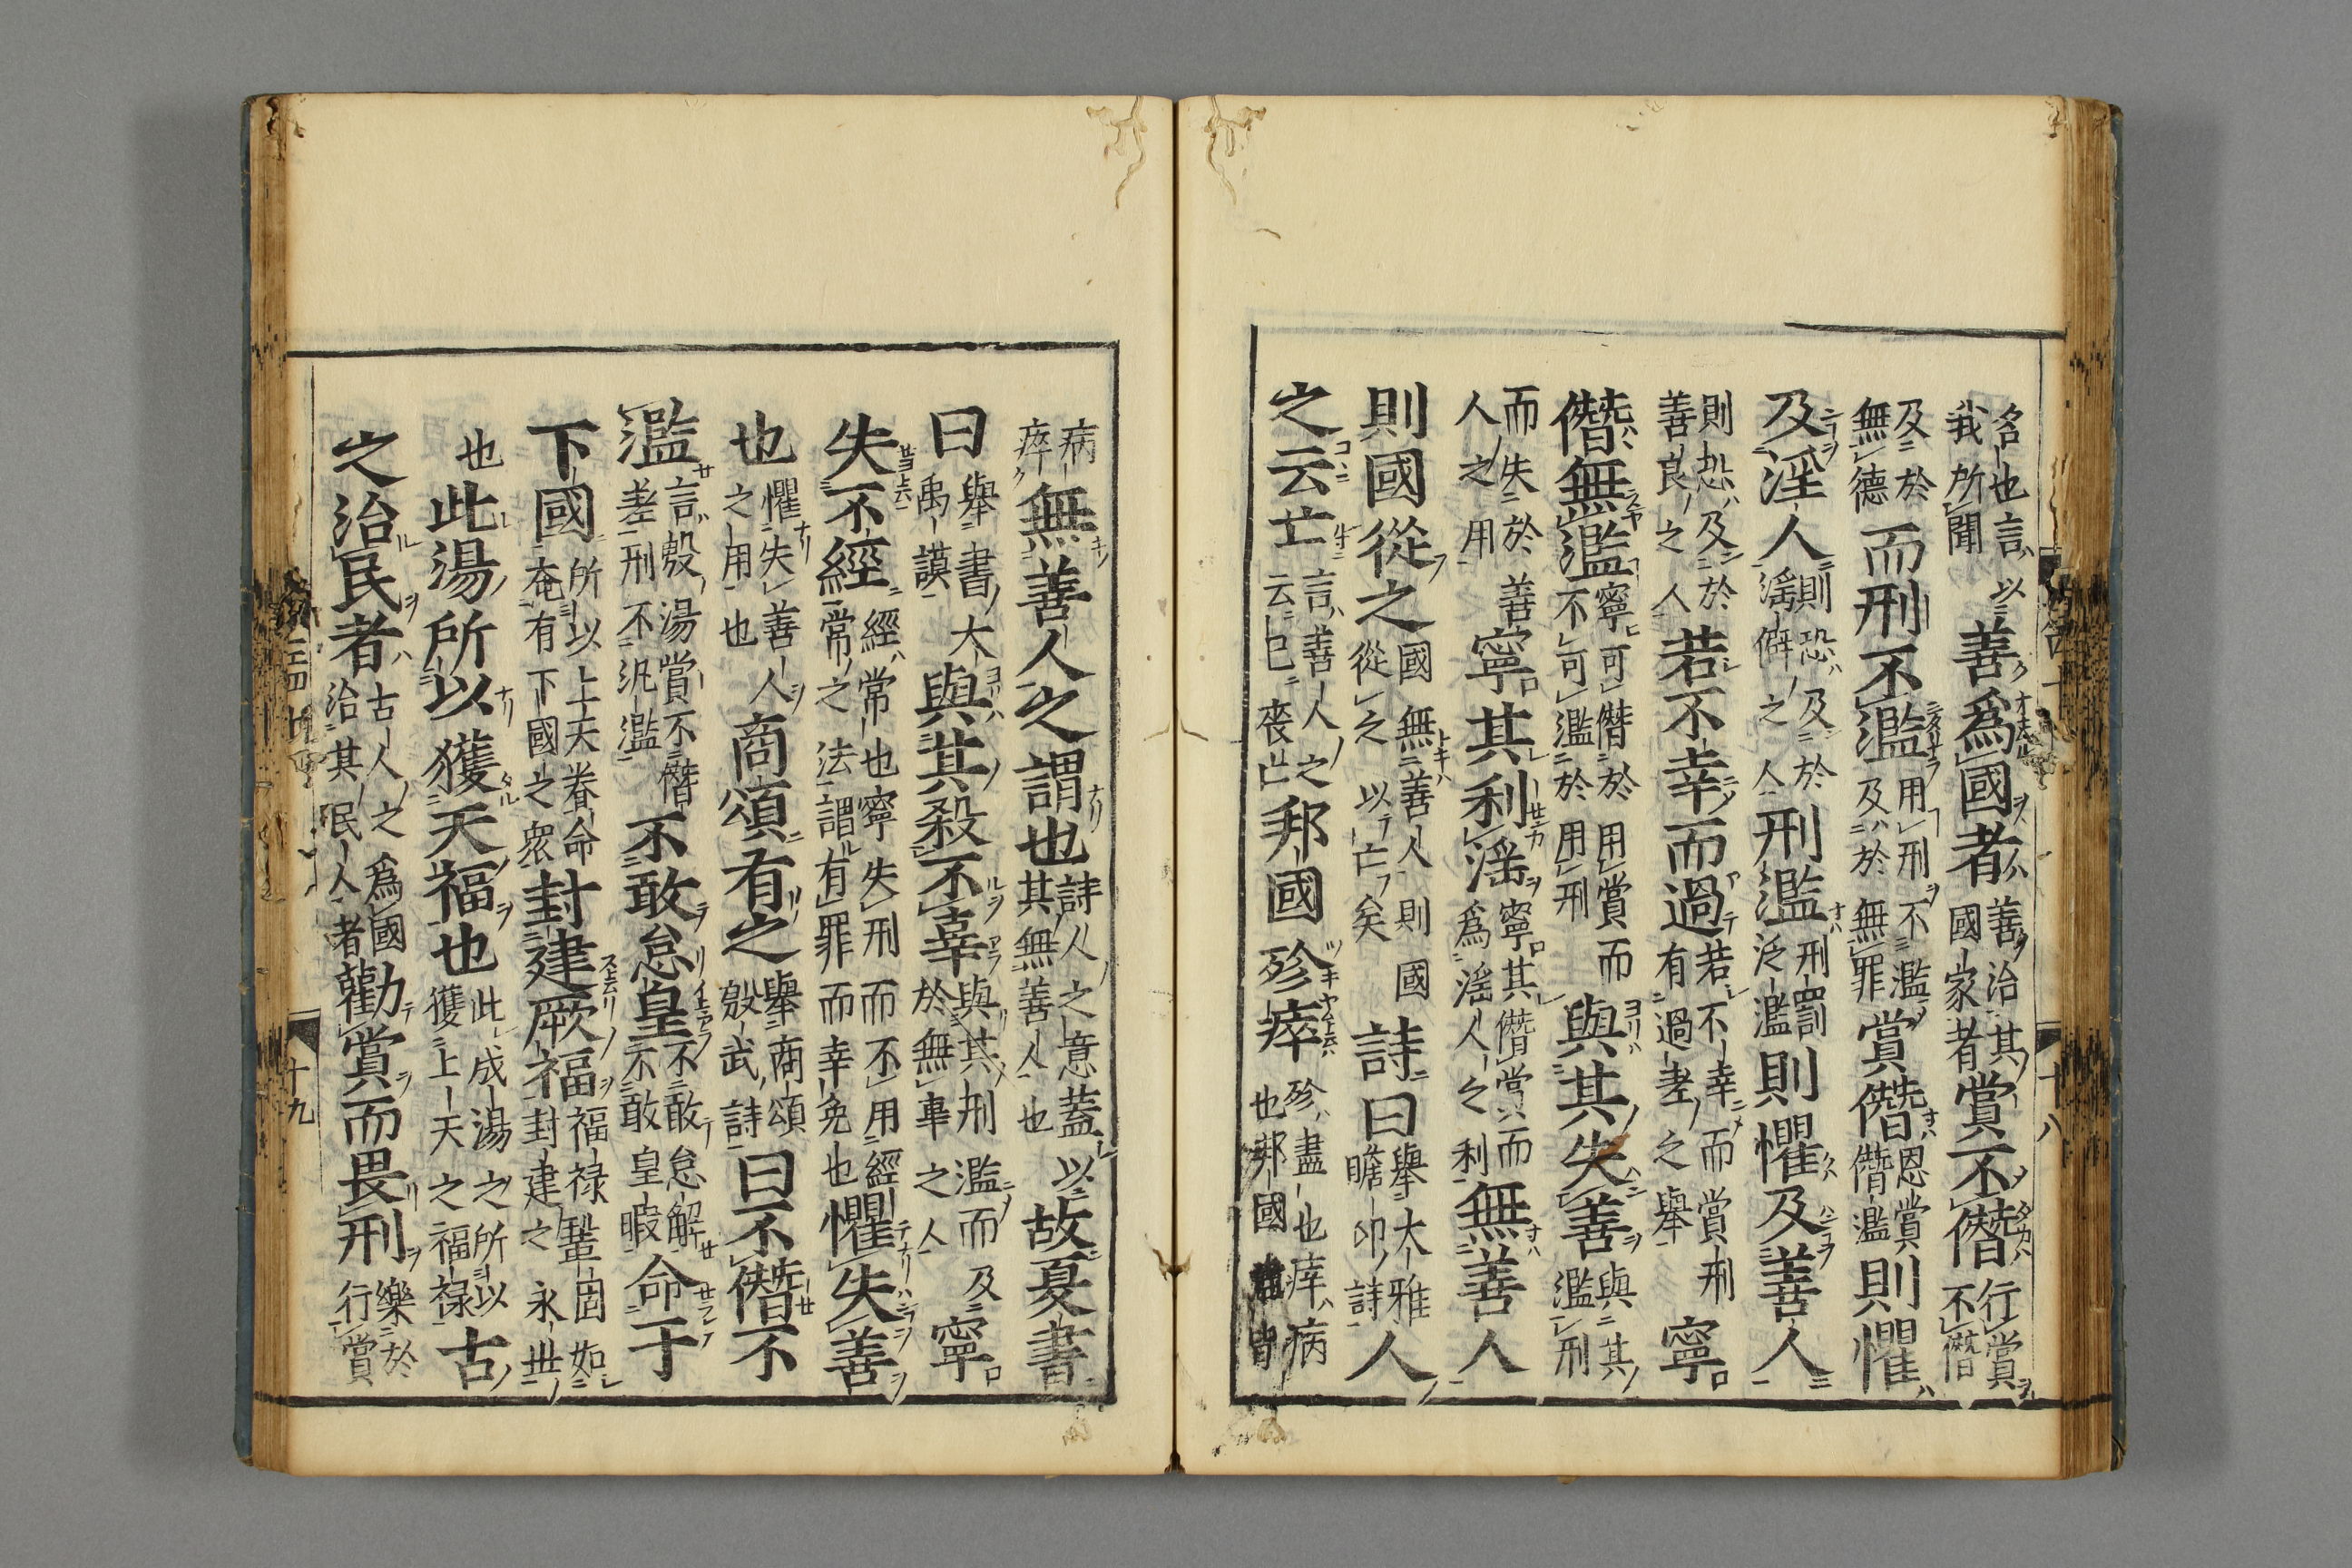 名也言以善爲國者善治其賞不僭行賞
我所聞國家者不僭
及於而刑不濫用刑不濫賞僭恩賞則懼
無德及於無罪僭濫
及淫人則恐及於刑濫刑罰則懼及善人
淫僻之人泛濫
則恐及於若不幸而過若不幸而賞刑寧
善良之人有過差之舉
僭無濫寧可僭於用賞而與其失善與其
不可濫於用刑濫刑
而失於善寧其利淫寧其僭賞而無善人
人之用爲淫人之利
則國從之國無善人則國詩曰舉大雅人
從之以亡矣瞻卬詩
之云亡言善人之邦國殄瘁殄盡也瘁病
云已喪亡也邦國皆
病無善人之謂也詩人之意蓋以故夏書
瘁其無善人也
曰舉書大與其殺不辜與其刑濫而及寧
禹謨於無辜之人
失不經經常也寧失刑而不用經懼失善
常之法謂有罪而幸免也
也懼失善人商頌有之舉商頌曰不僭不
之用也殷武詩
濫言殷湯賞不僭不敢怠皇不敢怠解命于
差刑不汎濫不敢皇暇
下國所以上天眷命封建厥福福祿鞏固如
奄有下國之衆封建之永世
也此湯所以獲天福也此成湯之所以古
獲上天之福祿
之治民者古人之爲國勸賞而畏刑樂於
治其民人者行賞
十八
十九